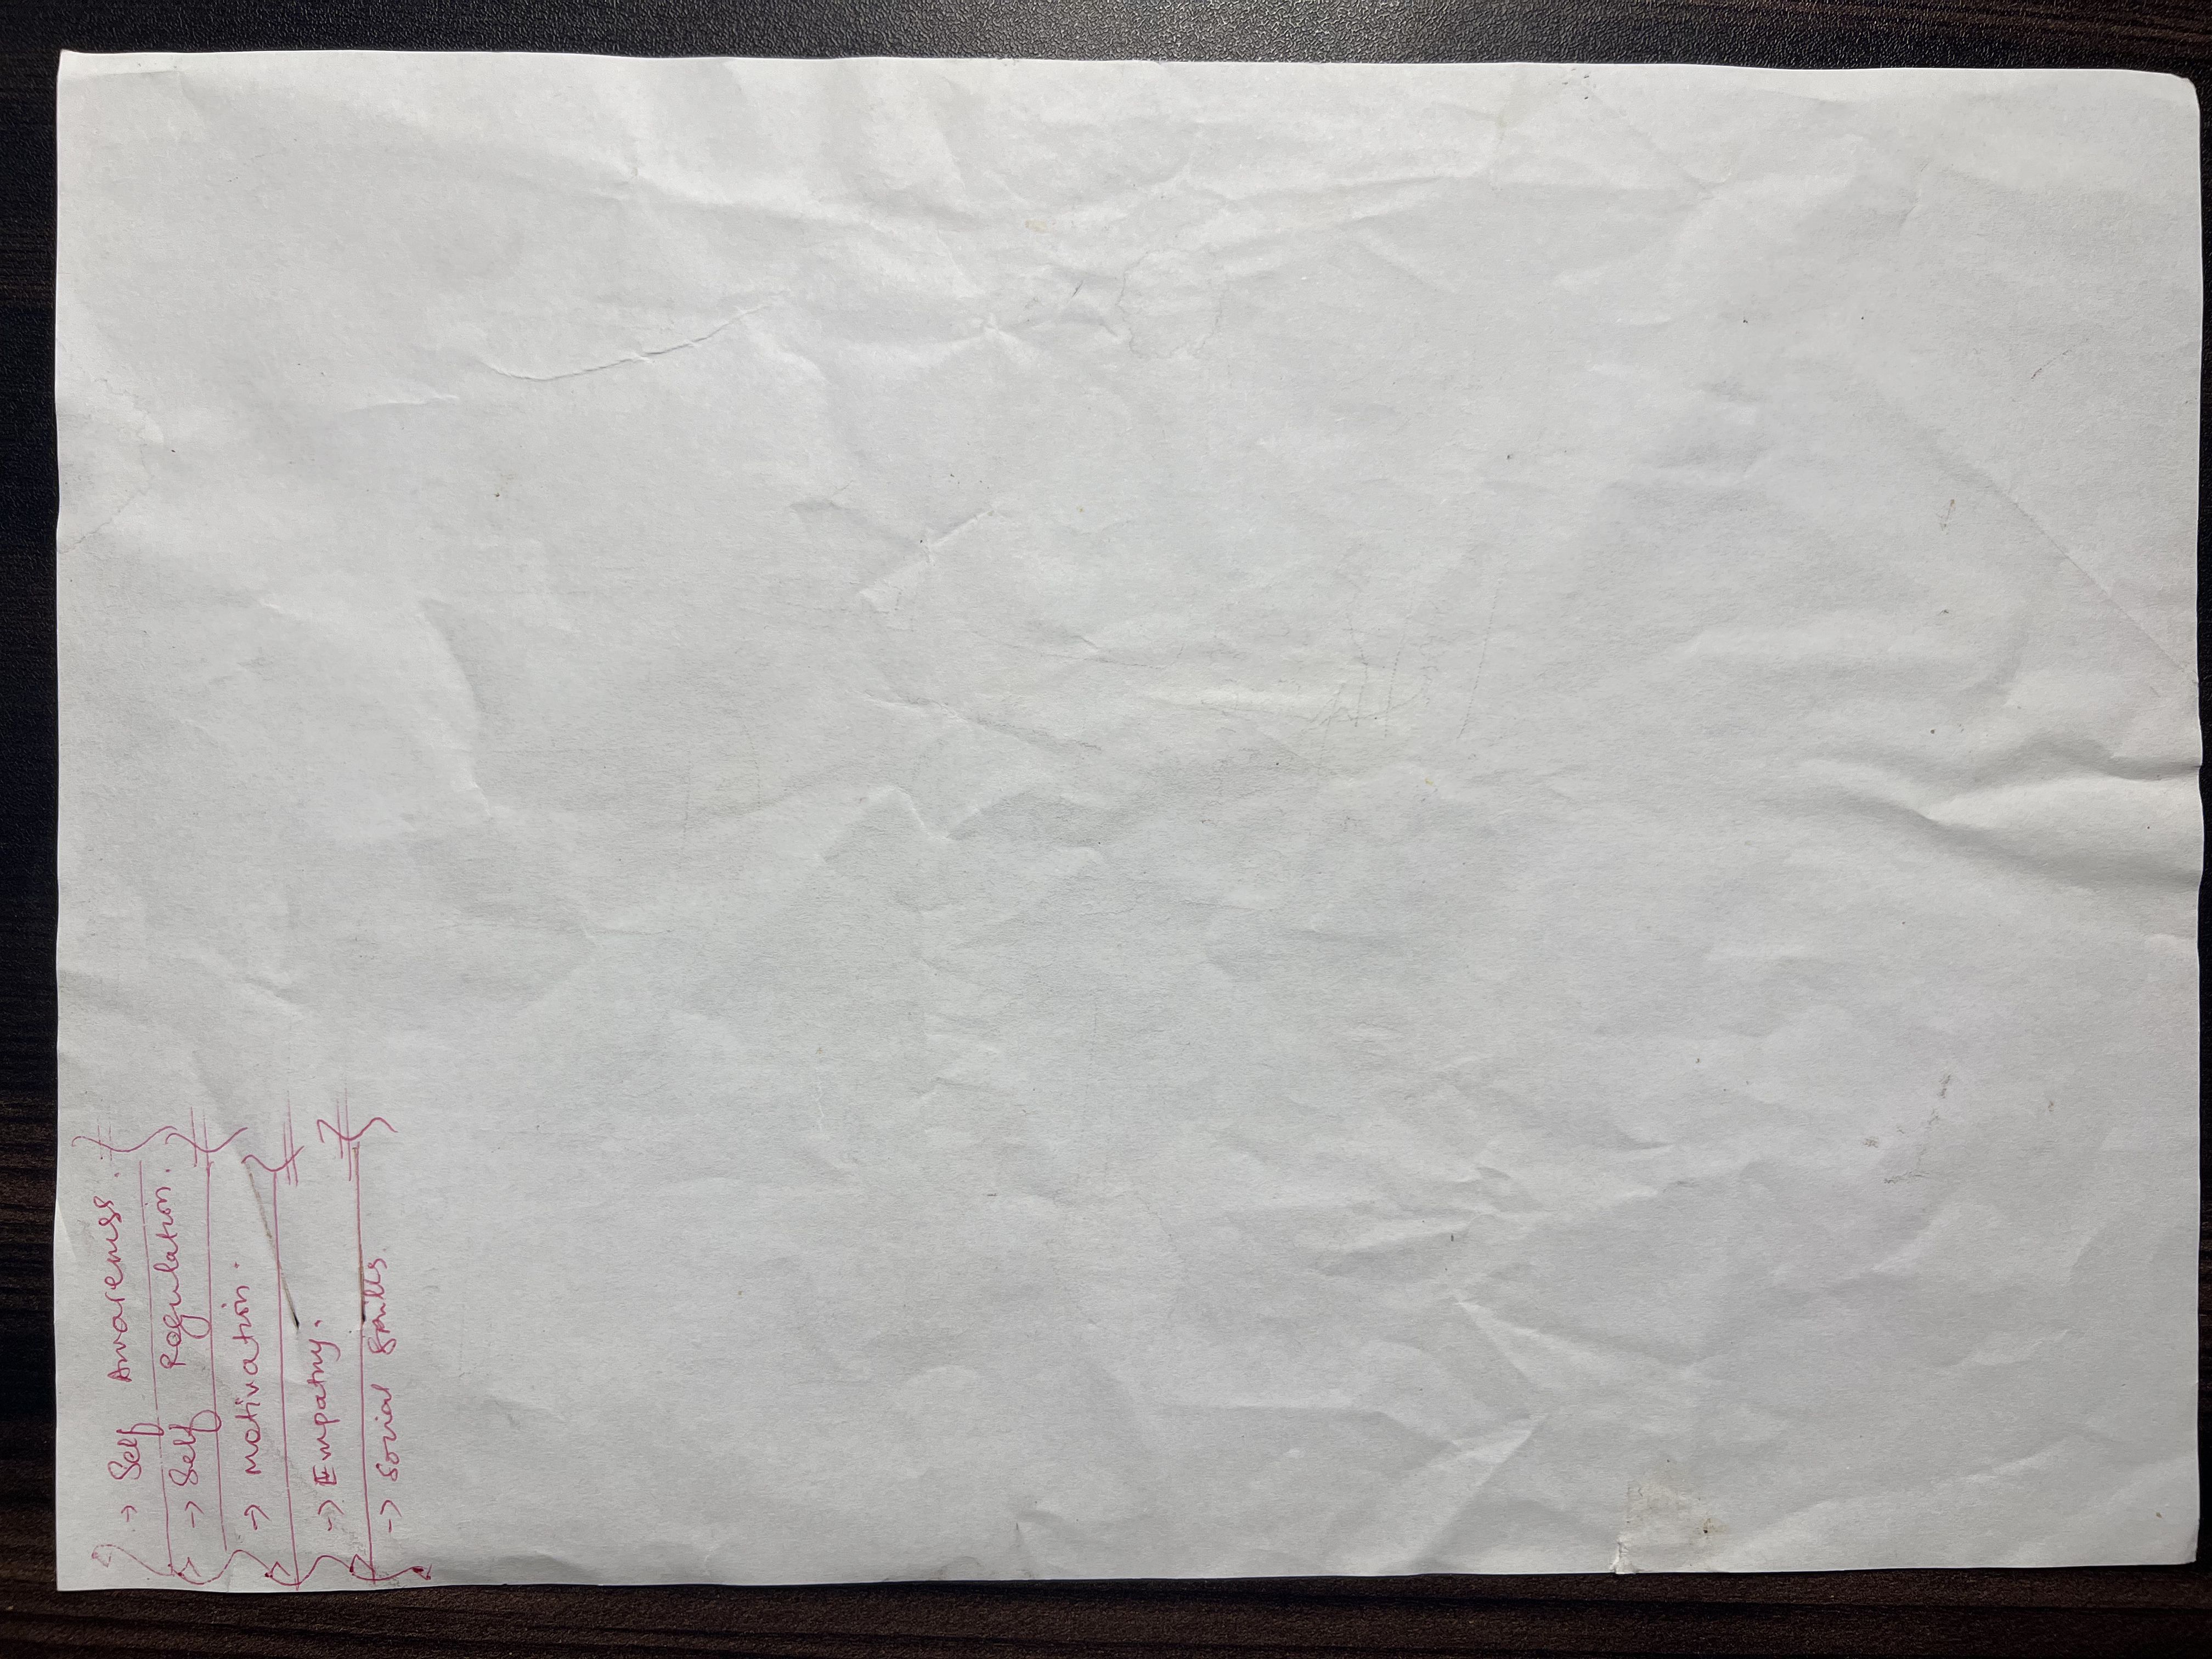 → Self Awareness.
→ Self Regulation.
→ Motivation.
→ Empathy.
→ Social Skills.